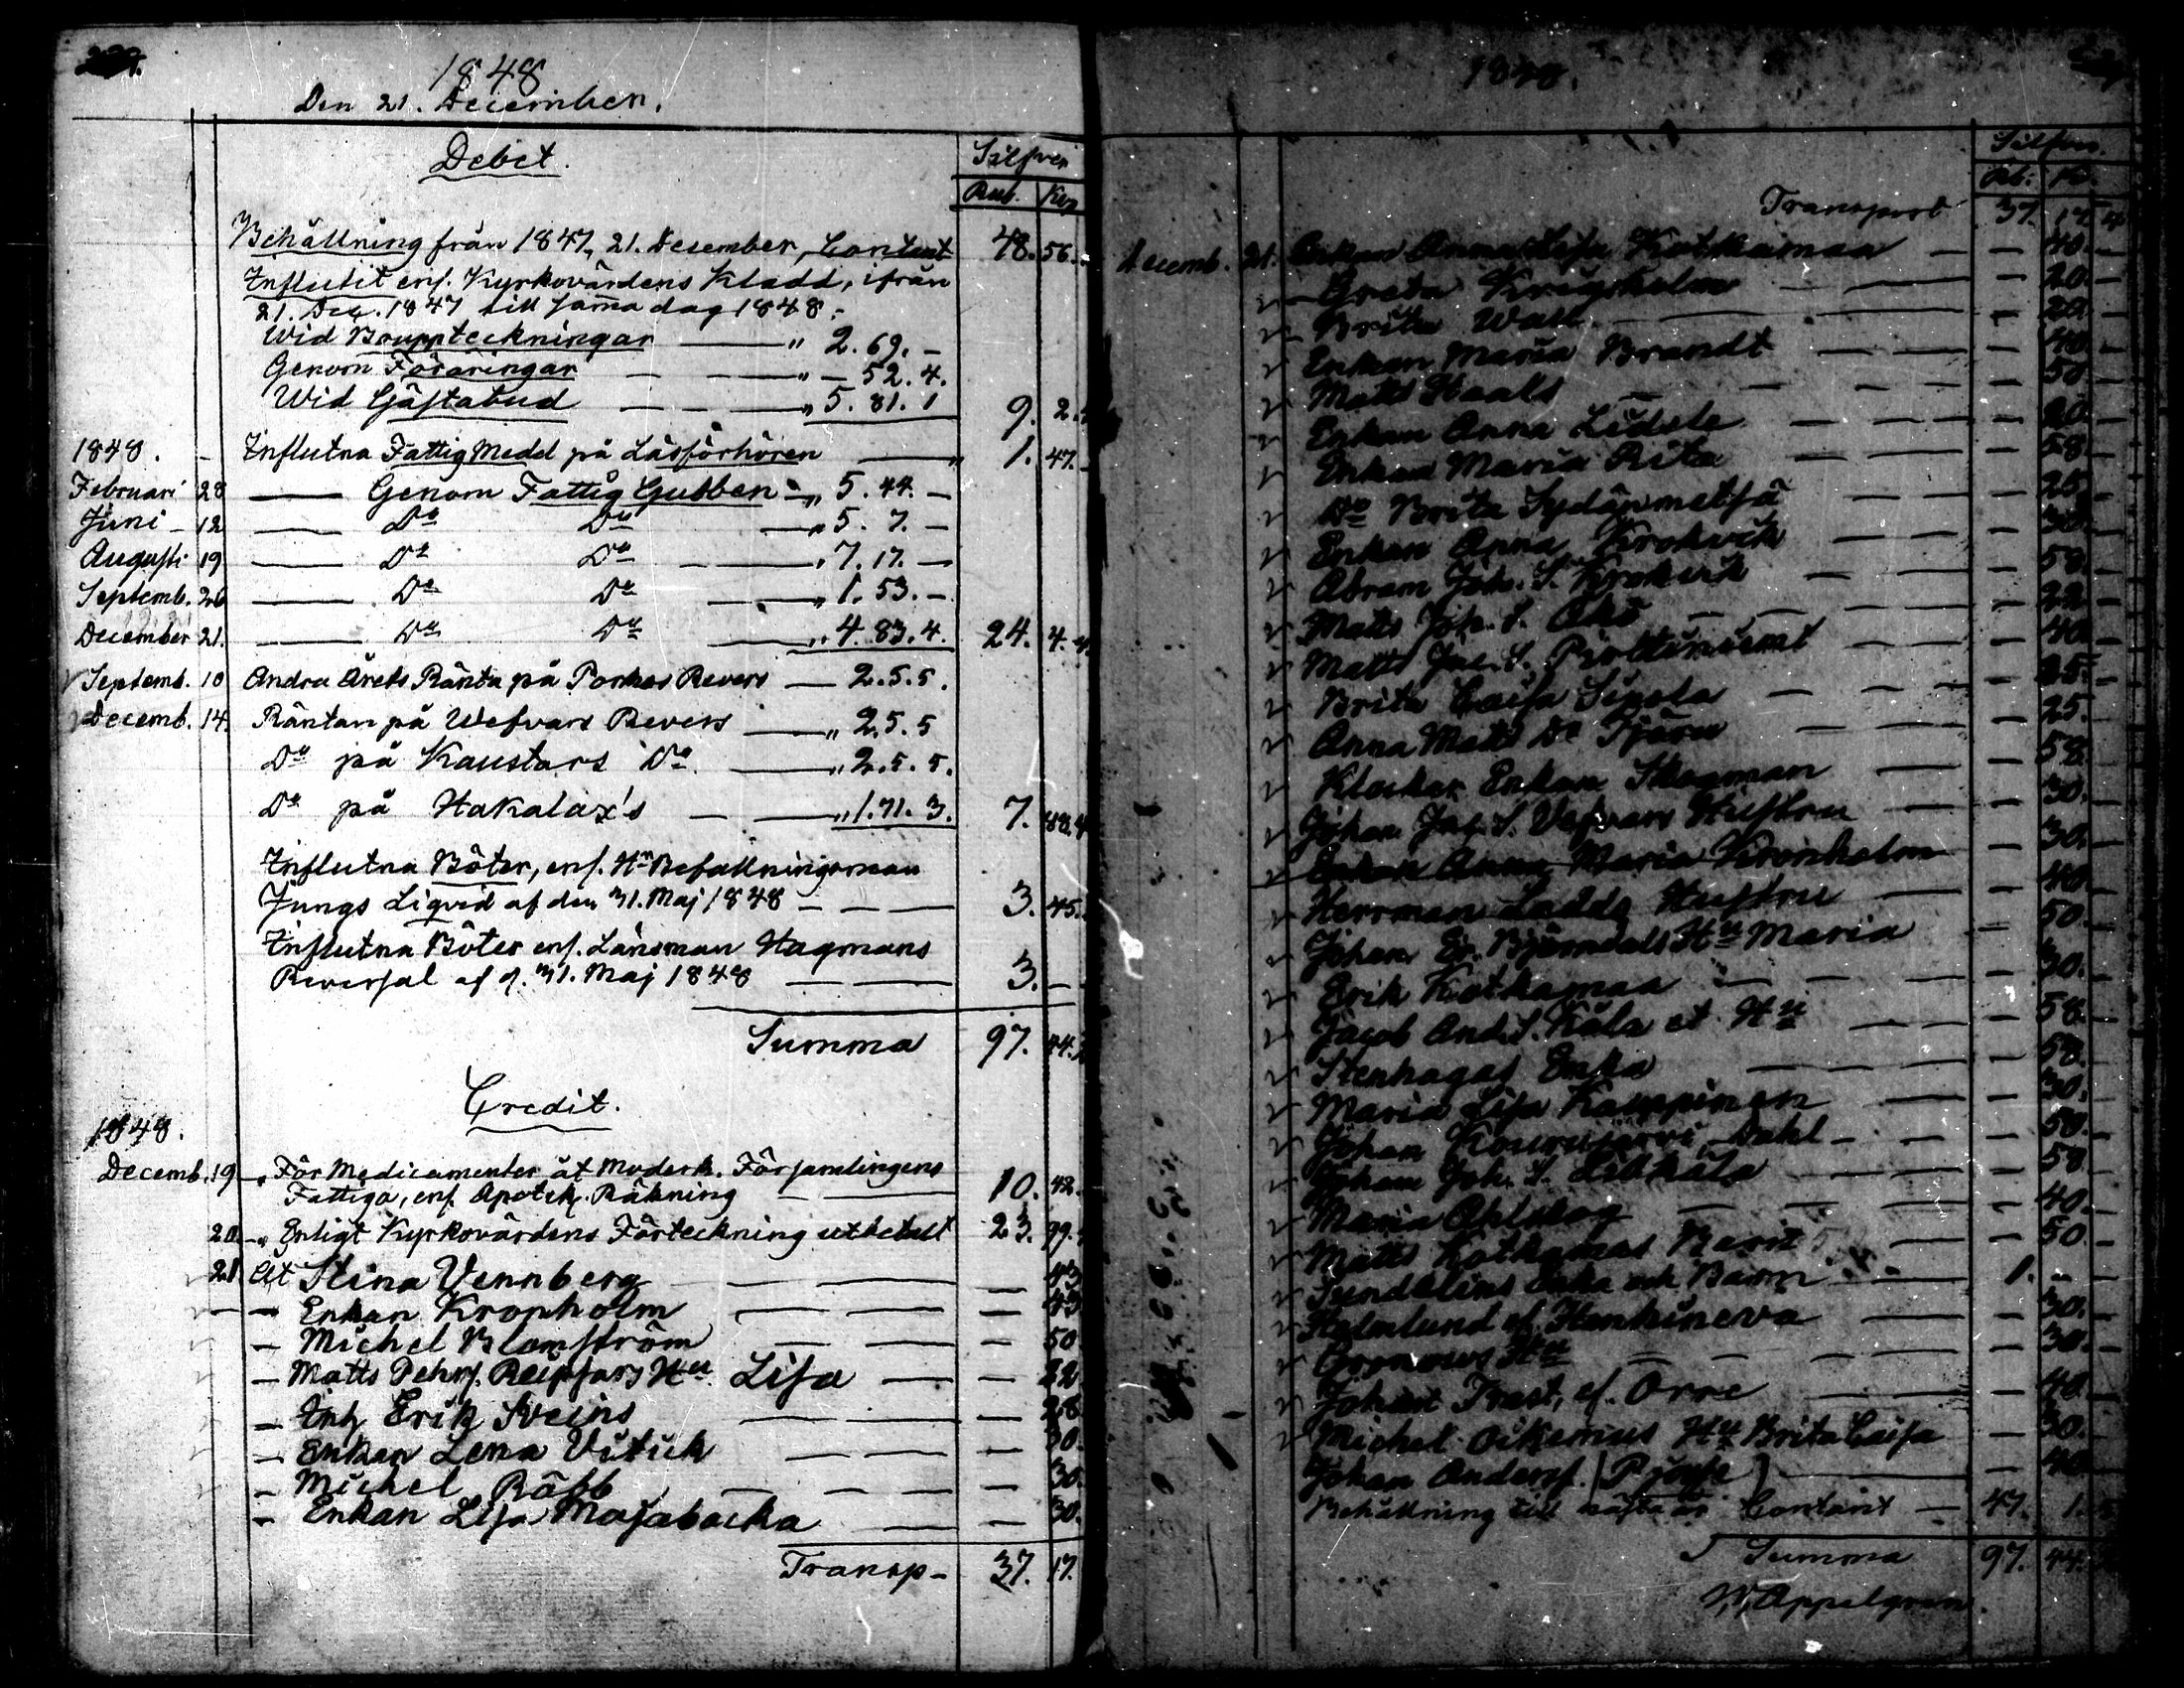 1848
Den 21. December.
Debet.
Silfver
Rub. Kop
Behållning från 1847, 21. December, Contant 48. 56.
Influtit enl. Kyrkovärdens Kladd, ifrån
21. Dec. 1847 till samma dag 1848.
Wid Bouppteckningar — " 2. 69. –
Genom Föräringar — — " — 52. 4.
Wid Gästabud — — " 5. 81. 1 9. 2.
1848. – Influtna Fattig Medel på Läsförhören — " 1. 47. –
Februari 28 — Genom Fattig Gubben — " 5. 44. –
Juni – 12 — Do Do — " 5. 7. –
Augusti 19 — Do Do — " 7. 17. —
Septemb. 26 — Do Do — " 1. 53. –
December 21. — Do Do — " 4. 83. 4. 24. 4. 4
Septemb. 10 Andra Årets Ränta på Porkas Revers — 2. 5. 5.
Decemb. 14. Räntan på Wefvars Revers — " 2. 5. 5
Do på Kaustars Do — " 2. 5. 5.
Do på Hakalax's — — " 1. 71. 3. 7. 88. 4
Influtna Böter, enl. Hr Befallningsman
Jungs Liqvid af den 31. Maj 1848 — — — 3. 45.
Influtna Böter enl. Länsman Hagmans
Reversal af d. 31. Maj 1848 — — 3. –
Summa 97. 44.
Credit.
1848.
Decemb. 19 – " För Medicamenter åt Moderk. Församlingens
Fattiga, enl. Apotek. Räkning — — 10. 42.
20. – " Enligt Kyrkovärdens Förteckning utbetalt 23. 99.
21 At Stina Vennberg — — — 43
— Enkan Kronholm — — — 43
— Michel Blomström — — — 50
— Matts Pehrs. Reipsars Hu Lisa — — 22
— Erik Sveins — — — 28
— Enkan Lena Vitick — — 30.
— Michel Räbb — — — 30.
— Enkan Lisa Majabacka — — 30.
Transp – 37. 17.
1848.
Silfver.
Rb: K.
Transport 37. 17. 4
Decemb. 21. Enkan Anna Lisa Kotkamaa — — 40. –
— Greta Krigsholm — — — 20. –
— Brita Wall — — — 20. –
Enkan Maria Brandt — — — 40. –
Matts Staals — — — 50
Enkan Anna — — — 20. –
Enkan Maria Rita — — — 58. –
Do Brita Sydänmetsä — — — 25. –
Enkan Anna Krokvik — — — 30. –
Abram Joh. S. Krokvik — — — 50. –
Matts Joh. S. — — — 22 –
Matts Jac. S. — — — 40. –
Brita Caisa Sipola — — — 25. –
Anna Matts Dr — — — 25. –
Klockar Enkan Skogman — — 58. –
Johan Jac. S. Vefvars Hustru — — 30. –
Enkan Anna Maria Kronholm — 30. –
Herrman Ladds Hustru — — 40. –
Johan Er. Björndals Hu Maria — — 50. –
Erik Kotkamaa — — — 30. –
Jacob And. S. Käla et Hu — — 58. –
Stenhagas Enka — — — 50. –
Maria Lisa Kauppinen — — 30. –
Johan Dahl — — — 50. –
Johan Joh. S. — — 50
Maria Ahlskog — — — 40. –
Matts Kotkamaas Barn — — 50. –
Sundelins Enka och Barn — 1. – –
Holmlund et Hankineva — — 30. –
Hu — — — 30. –
Johan Trast, et Orre — — 40. –
Michel Oikarius Hu Brita Caisa — 30. –
Johan Anders. — — 40
Behållning till nästa år Contant — 47. 1.
Summa 97. 44.
W. Appelgren.